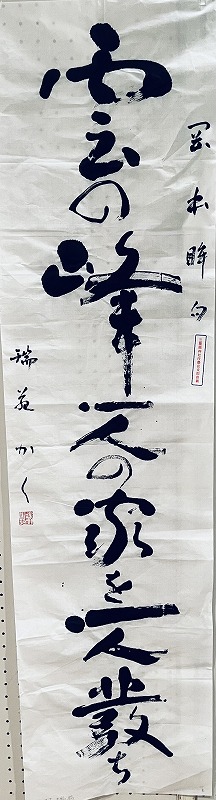 岡本眸句
雲の峰一人の家を一人發ち
瑞苑かく